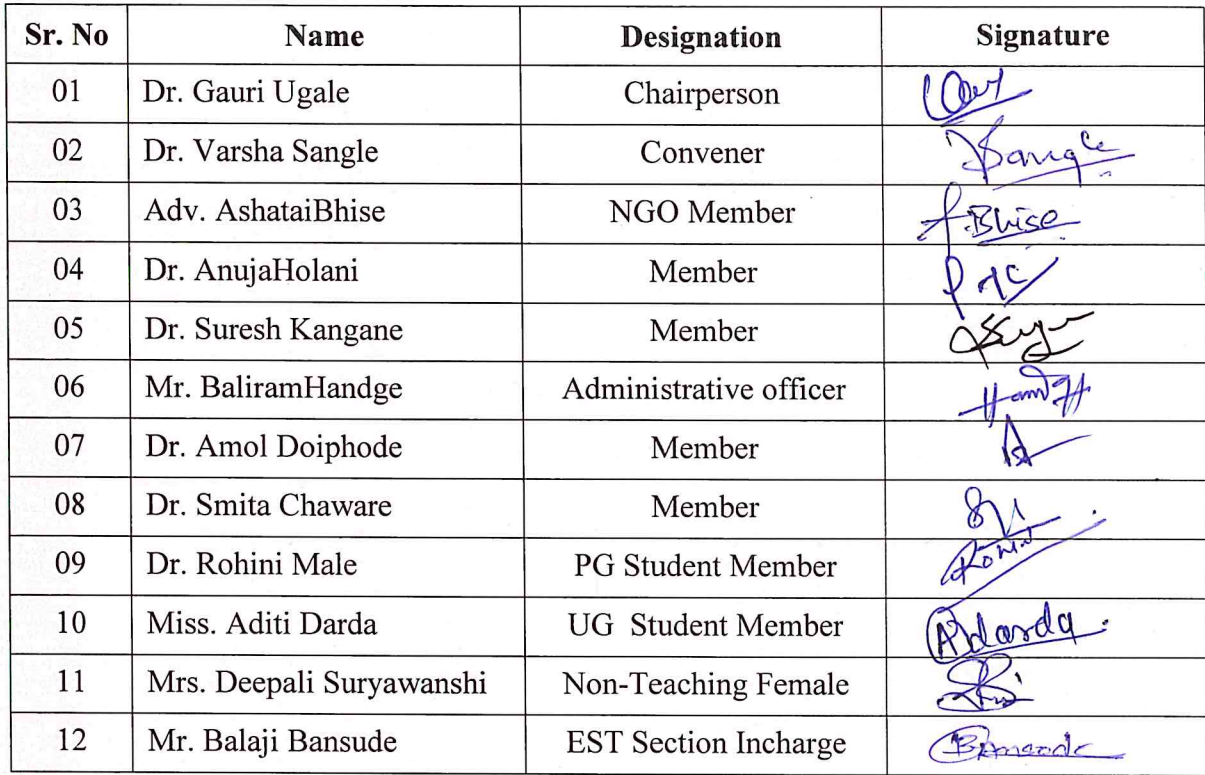 Sr. No Name Designation Signature
01 Dr. Gauri Ugale Chairperson
02 Dr. Varsha Sangle Convener Sangle
03 Adv. AshataiBhise NGO Member A.Bhise
04 Dr. AnujaHolani Member
05 Dr. Suresh Kangane Member
06 Mr. BaliramHandge Administrative officer
07 Dr. Amol Doiphode Member
08 Dr. Smita Chaware Member
09 Dr. Rohini Male PG Student Member
10 Miss. Aditi Darda UG Student Member Adarda.
11 Mrs. Deepali Suryawanshi Non-Teaching Female
12 Mr. Balaji Bansude EST Section Incharge